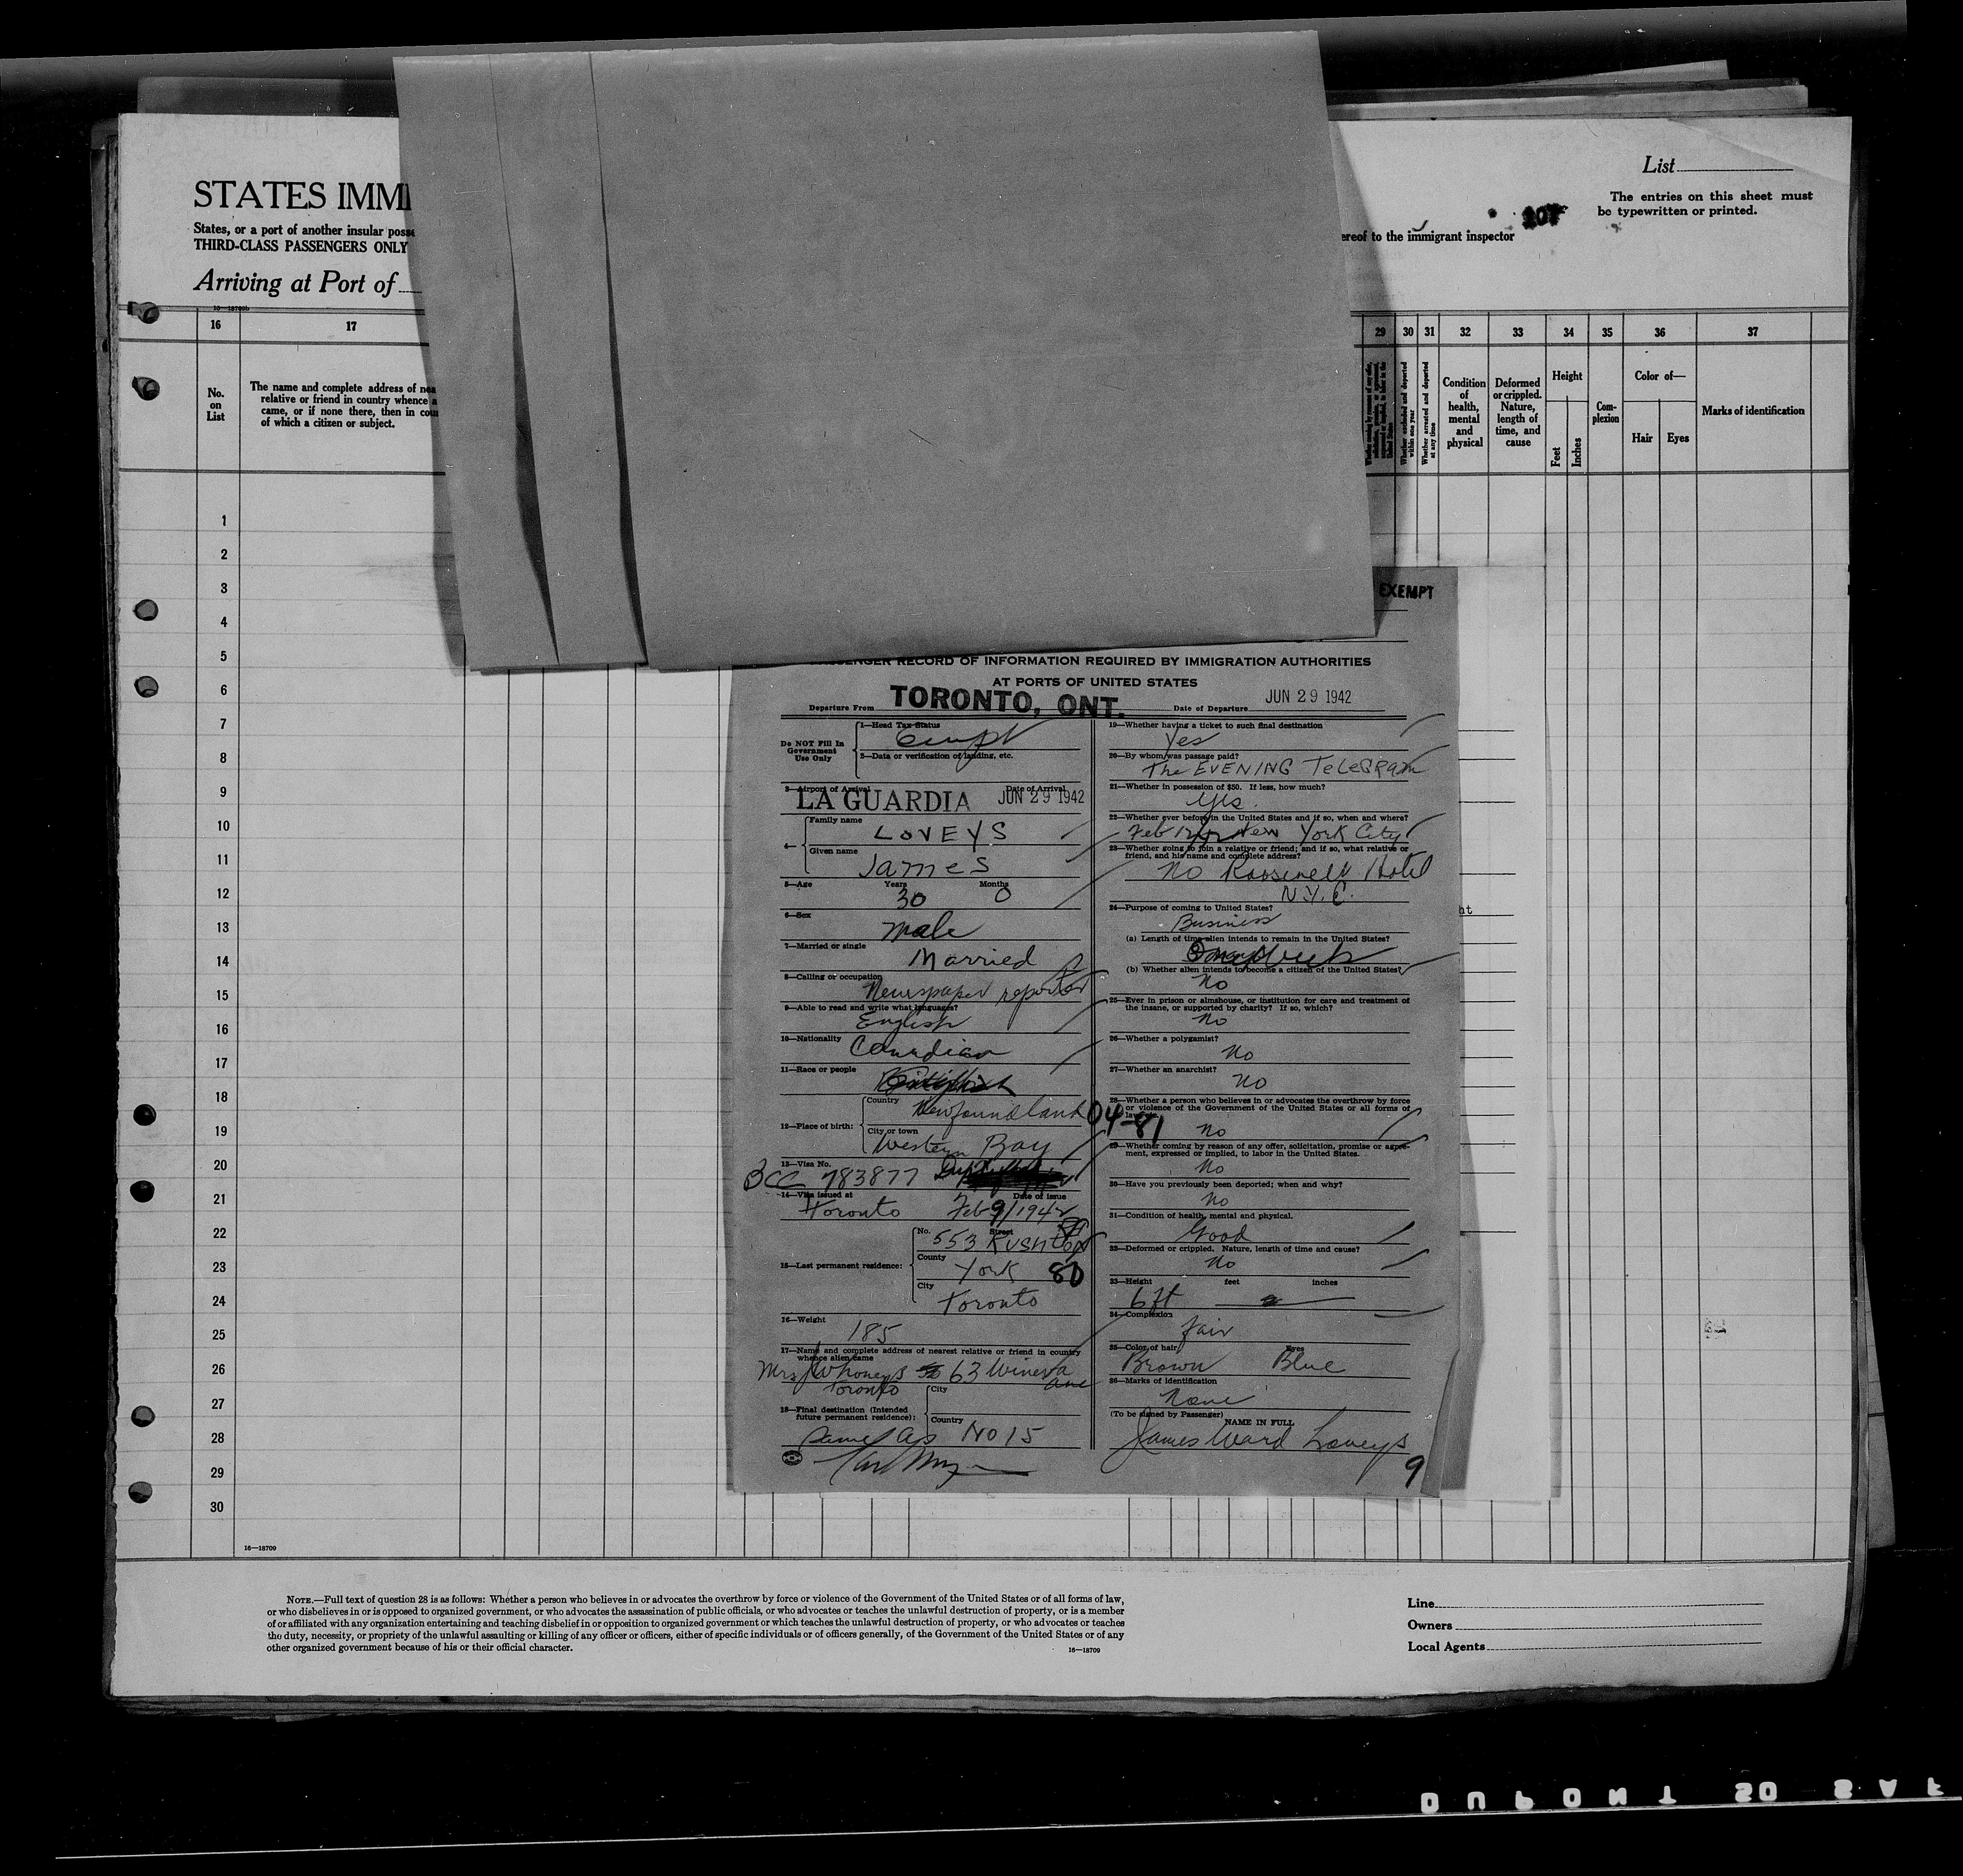 List
STATES IMMI
The entries on this sheet must
be typewritten or printed.
States, or a port of another insular posse
ereof to the immigrant inspector
THIRD-CLASS PASSENGERS ONLY
Arriving at Port of
16 17 29 30 31 32 33 34 35 36 37
No. on List
The name and complete address of nea
relative or friend in country whence a
came, or if none there, then in cou
of which a citizen or subject.
Whether excluded and deported within one year
Whether arrested and deported at any time
Condition of health, mental and physical
Deformed or crippled. Nature, length of time, and cause
Height
Feet Inches
Com-plexion
Color of—
Hair Eyes
Marks of identification
1
2
3
4
5
6
7
8
9
10
11
12
13
14
15
16
17
18
19
20
21
22
23
24
25
26
27
28
29
30
16—18709
EXEMPT
SENGER RECORD OF INFORMATION REQUIRED BY IMMIGRATION AUTHORITIES
AT PORTS OF UNITED STATES
Departure From TORONTO, ONT. Date of Departure JUN 29 1942
Do NOT Fill In Government Use Only
1—Head Tax Status
2—Data or verification of landing, etc.
3—Airport of Arrival Date of Arrival
LA GUARDIA JUN 29 1942
4— Family name LOVEYS
Given name James
5—Age Years 30 Months 0
6—Sex Male
7—Married or single Married
8—Calling or occupation Newspaper reporter
9—Able to read and write what languages?
English
10—Nationality Canadian
11—Race or people
12—Place of birth: Country Newfoundland
City or town Western Bay
04-81
13—Visa No.
BCC 783877
14—Visa issued at Date of issue
Toronto Feb 9/1942
15—Last permanent residence: No. Street 553 Rushton
County York 80
City Toronto
16—Weight 185
17—Name and complete address of nearest relative or friend in country
whence alien came
Mrs J W Loveys 63 Wineva Ave
Toronto
18—Final destination (Intended
future permanent residence): City
Country
Same as No 15
19—Whether having a ticket to such final destination
Yes
20—By whom was passage paid?
The EVENING TELEGRAM
21—Whether in possession of $50. If less, how much?
yes.
22—Whether ever before in the United States and if so, when and where?
Feb New York City
23—Whether going to join a relative or friend; and if so, what relative or
friend, and his name and complete address?
No Roosevelt Hotel
N.Y.C.
24—Purpose of coming to United States?
Business
(a) Length of time alien intends to remain in the United States?
(b) Whether alien intends to become a citizen of the United States?
No
25—Ever in prison or almshouse, or institution for care and treatment of
the insane, or supported by charity? If so, which?
No
26—Whether a polygamist?
No
27—Whether an anarchist?
No
28—Whether a person who believes in or advocates the overthrow by force
or violence of the Government of the United States or all forms of
law
No
29—Whether coming by reason of any offer, solicitation, promise or agree-
ment, expressed or implied, to labor in the United States.
No
30—Have you previously been deported; when and why?
No
31—Condition of health, mental and physical.
Good
32—Deformed or crippled. Nature, length of time and cause?
No
33—Height feet inches
6 ft
34—Complexion
fair
35—Color of hair Eyes
Brown Blue
36—Marks of identification
None
(To be signed by Passenger) NAME IN FULL
James Ward Loveys
9
ht
NOTE.—Full text of question 28 is as follows: Whether a person who believes in or advocates the overthrow by force or violence of the Government of the United States or of all forms of law,
or who disbelieves in or is opposed to organized government, or who advocates the assassination of public officials, or who advocates or teaches the unlawful destruction of property, or is a member
of or affiliated with any organization entertaining and teaching disbelief in or opposition to organized government or which teaches the unlawful destruction of property, or who advocates or teaches
the duty, necessity, or propriety of the unlawful assaulting or killing of any officer or officers, either of specific individuals or of officers generally, of the Government of the United States or of any
other organized government because of his or their official character.
16—18709
Line
Owners
Local Agents